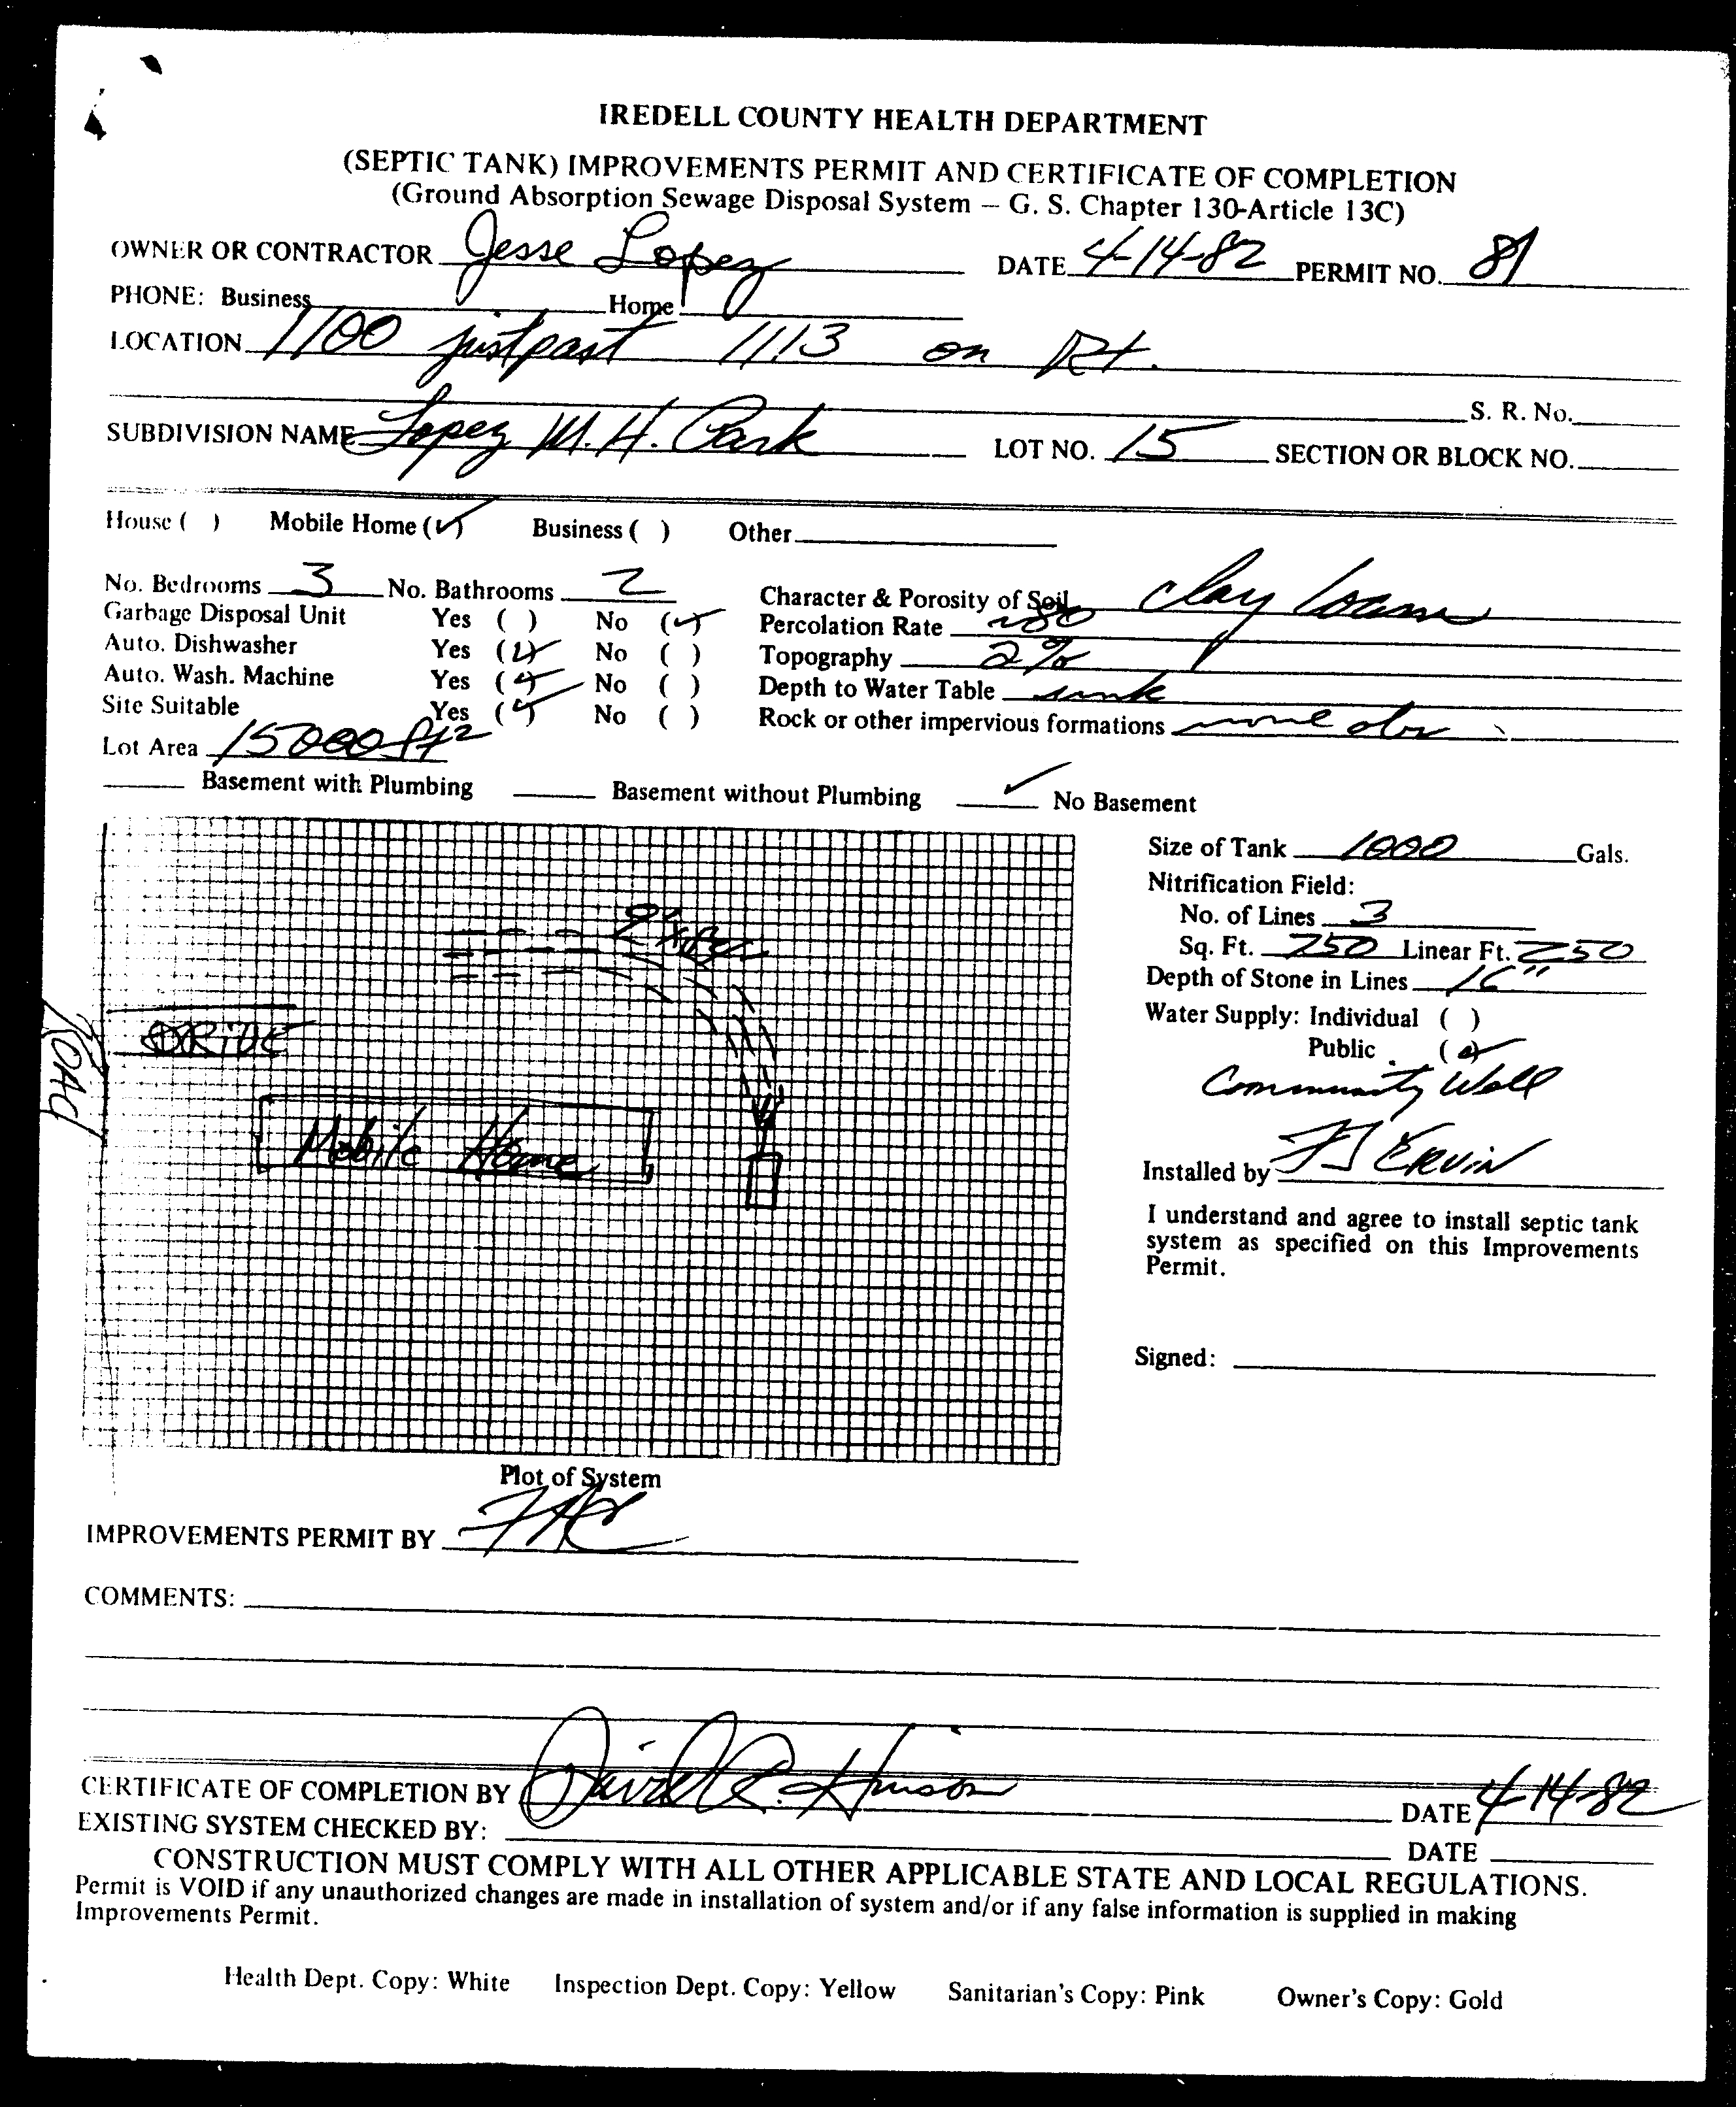 IREDELL COUNTY HEALTH DEPARTMENT
(SEPTIC TANK) IMPROVEMENTS PERMIT AND CERTIFICATE OF COMPLETION
(Ground Absorption Sewage Disposal System — G. S. Chapter 130-Article 13C)
OWNER OR CONTRACTOR Jesse Lopez DATE 4-14-82 PERMIT NO. 81
PHONE: Business Home
LOCATION 1100 just past 1113 on Rt.
S. R. No.
SUBDIVISION NAME Lopez M. H. Park LOT NO. 15 SECTION OR BLOCK NO.
House ( ) Mobile Home (✓) Business ( ) Other
No. Bedrooms 3 No. Bathrooms 2 Character & Porosity of Soil clay loam
Garbage Disposal Unit Yes ( ) No (✓) Percolation Rate
Auto. Dishwasher Yes (✓) No ( ) Topography 2%
Auto. Wash. Machine Yes (✓) No ( ) Depth to Water Table
Site Suitable Yes (✓) No ( ) Rock or other impervious formations none obs
Lot Area 15000 ft2
Basement with Plumbing Basement without Plumbing ✓ No Basement
Size of Tank 1000 Gals.
Nitrification Field:
No. of Lines 3
Sq. Ft. 750 Linear Ft. 250
Depth of Stone in Lines 16"
Water Supply: Individual ( )
Public (✓)
Community Well
Installed by FJ ERVIN
I understand and agree to install septic tank
system as specified on this Improvements
Permit.
Signed:
ROAD
DRIVE
Mobile Home
Plot of System
IMPROVEMENTS PERMIT BY
COMMENTS:
CERTIFICATE OF COMPLETION BY David C. Hinson DATE 4-14-82
EXISTING SYSTEM CHECKED BY: DATE
CONSTRUCTION MUST COMPLY WITH ALL OTHER APPLICABLE STATE AND LOCAL REGULATIONS.
Permit is VOID if any unauthorized changes are made in installation of system and/or if any false information is supplied in making
Improvements Permit.
Health Dept. Copy: White Inspection Dept. Copy: Yellow Sanitarian's Copy: Pink Owner's Copy: Gold